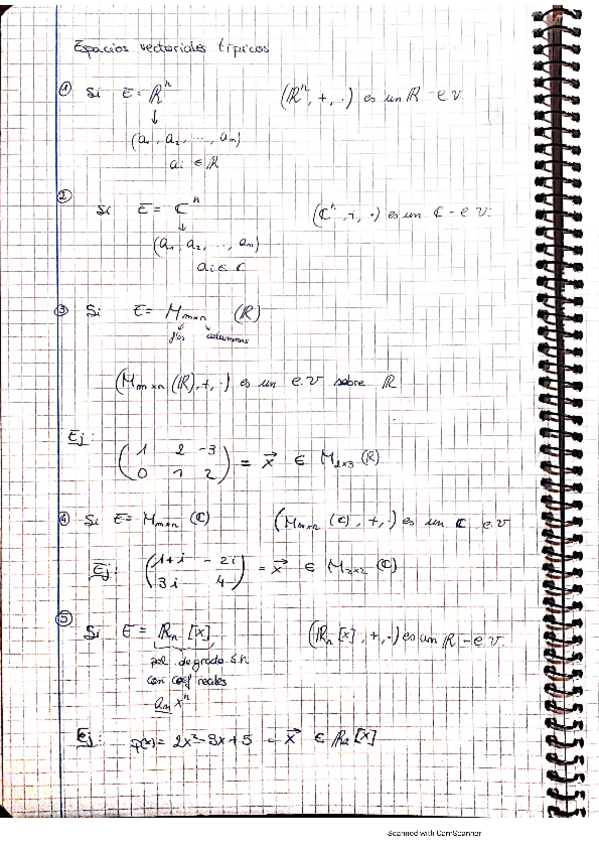 Espacios vectoriales típicos
① Si E = ℝⁿ (ℝⁿ, +, ·) es un ℝ - e.v
↓
(a₁, a₂, ..., aₙ)
ai ∈ ℝ
② Si E = ℂⁿ (ℂⁿ, +, ·) es un ℂ - e.v.
↓
(a₁, a₂, ..., aₙ)
ai ∈ ℂ
③ Si E = Mₘₓₙ (ℝ)
filas columnas
(Mₘₓₙ (ℝ), +, ·) es un e.v sobre ℝ
Ej:
( 1 2 -3
0 1 2 ) = x⃗ ∈ M₂ₓ₃ (ℝ)
④ Si E = Mₘₓₙ (ℂ) (Mₘₓₙ (ℂ), +, ·) es un ℂ - e.v
Ej: ( 1+i -2i
3i 4 ) = x⃗ ∈ M₂ₓ₂ (ℂ)
⑤ Si E = ℝₙ [x] (ℝₙ [x], +, ·) es un ℝ - e.v.
pol de grado ≤ n
con coef reales
aₙ xⁿ
Ej: p(x) = 2x² - 3x + 5 = x⃗ ∈ ℝ₂ [x]
Scanned with CamScanner